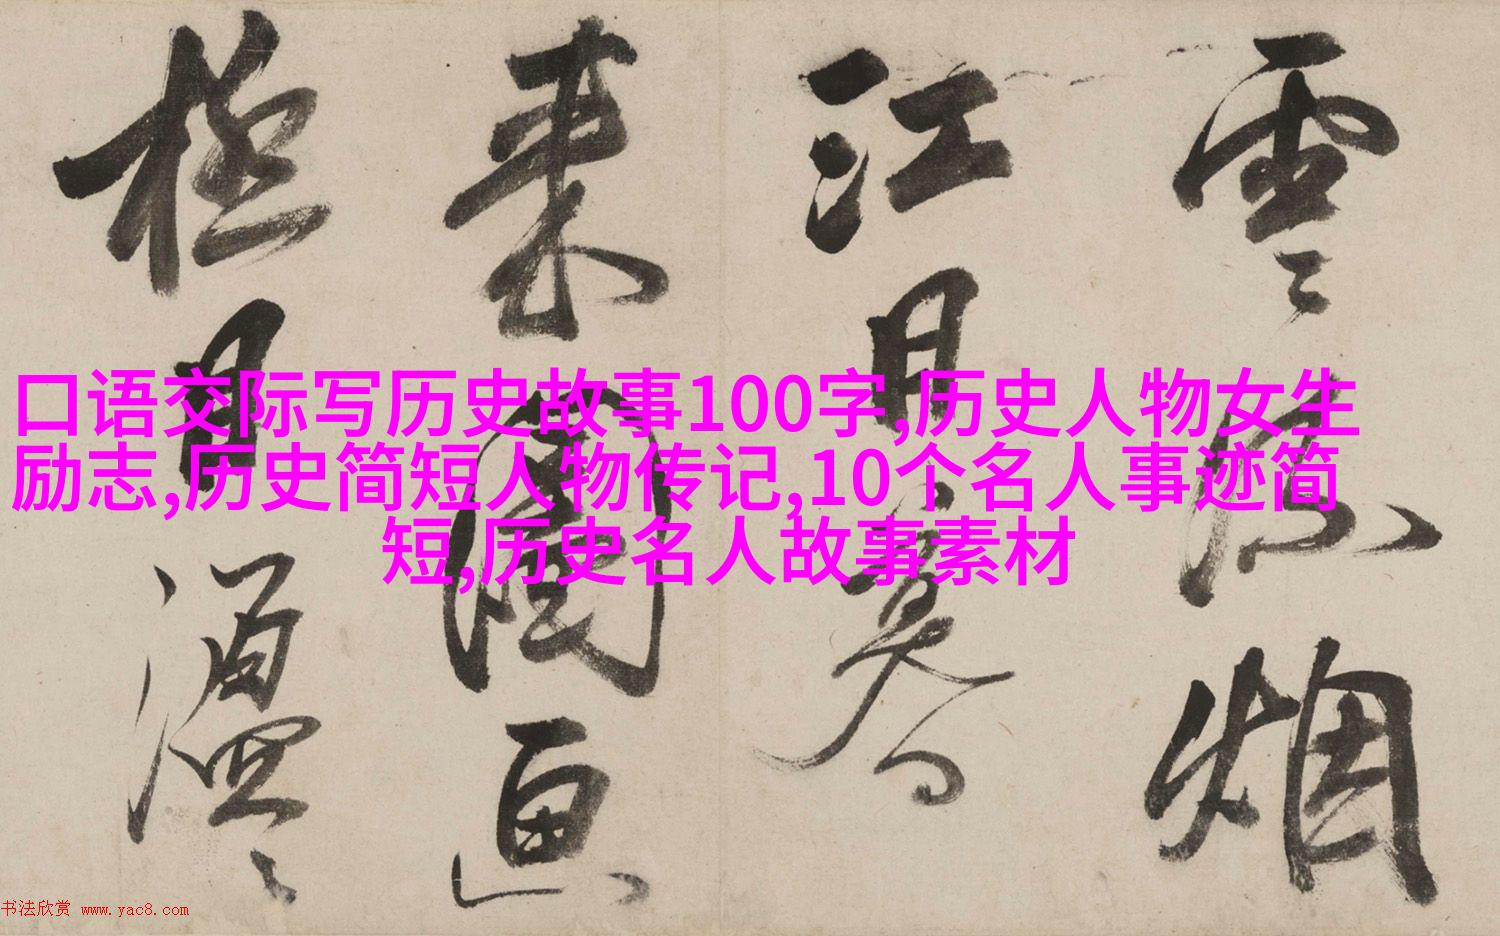 口语交际写历史故事100字,历史人物女生
励志,历史简短人物传记,10个名人事迹简
短,历史名人故事素材
雲〻烟
江
来圖画
極目
书法欣赏 www.yac8.com